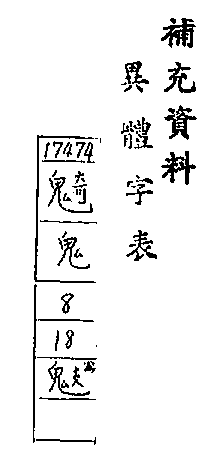 補充資料
異體字表
17474
鬼
8
18